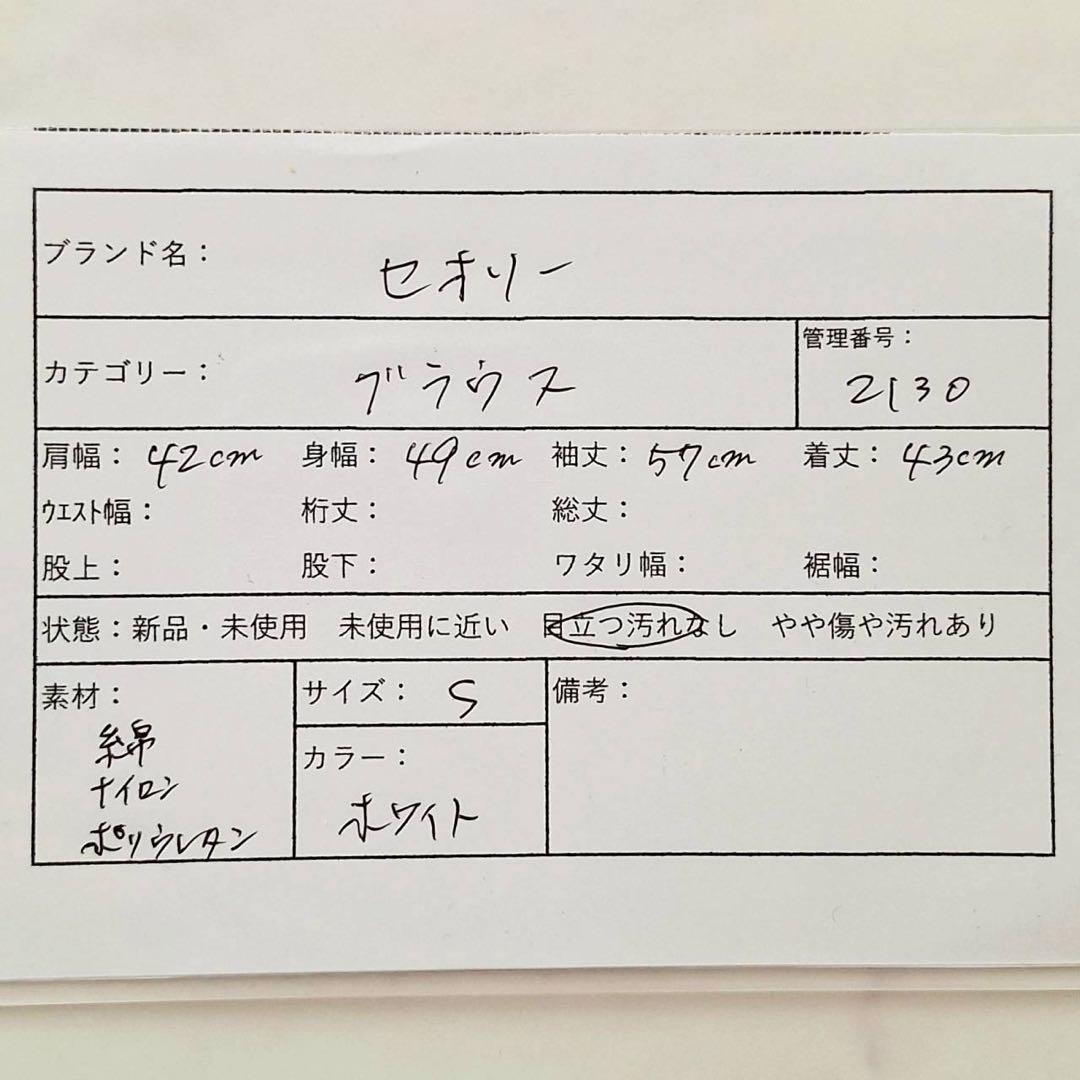 ブランド名： セオリー
カテゴリー： ブラウス
管理番号： 2130
肩幅： 42cm 身幅： 49cm 袖丈： 57cm 着丈： 43cm
ウエスト幅： 裄丈： 総丈：
股上： 股下： ワタリ幅： 裾幅：
状態：新品・未使用 未使用に近い 目立つ汚れなし やや傷や汚れあり
素材：
綿
ナイロン
ポリウレタン
サイズ： S
カラー：
ホワイト
備考：